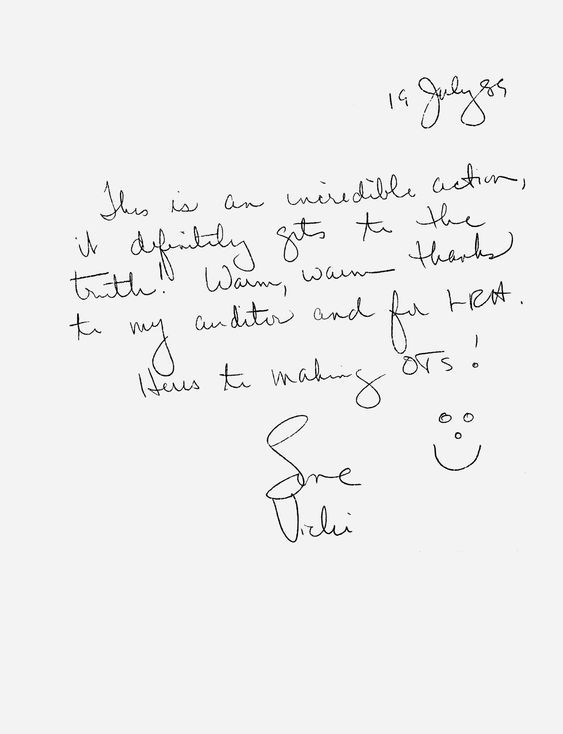 19 July 89
This is an incredible action,
it definitely gets to the
truth! Warm, warm thanks
to my auditor and for LRH.
Heres to making OTs!
Love
Vicki